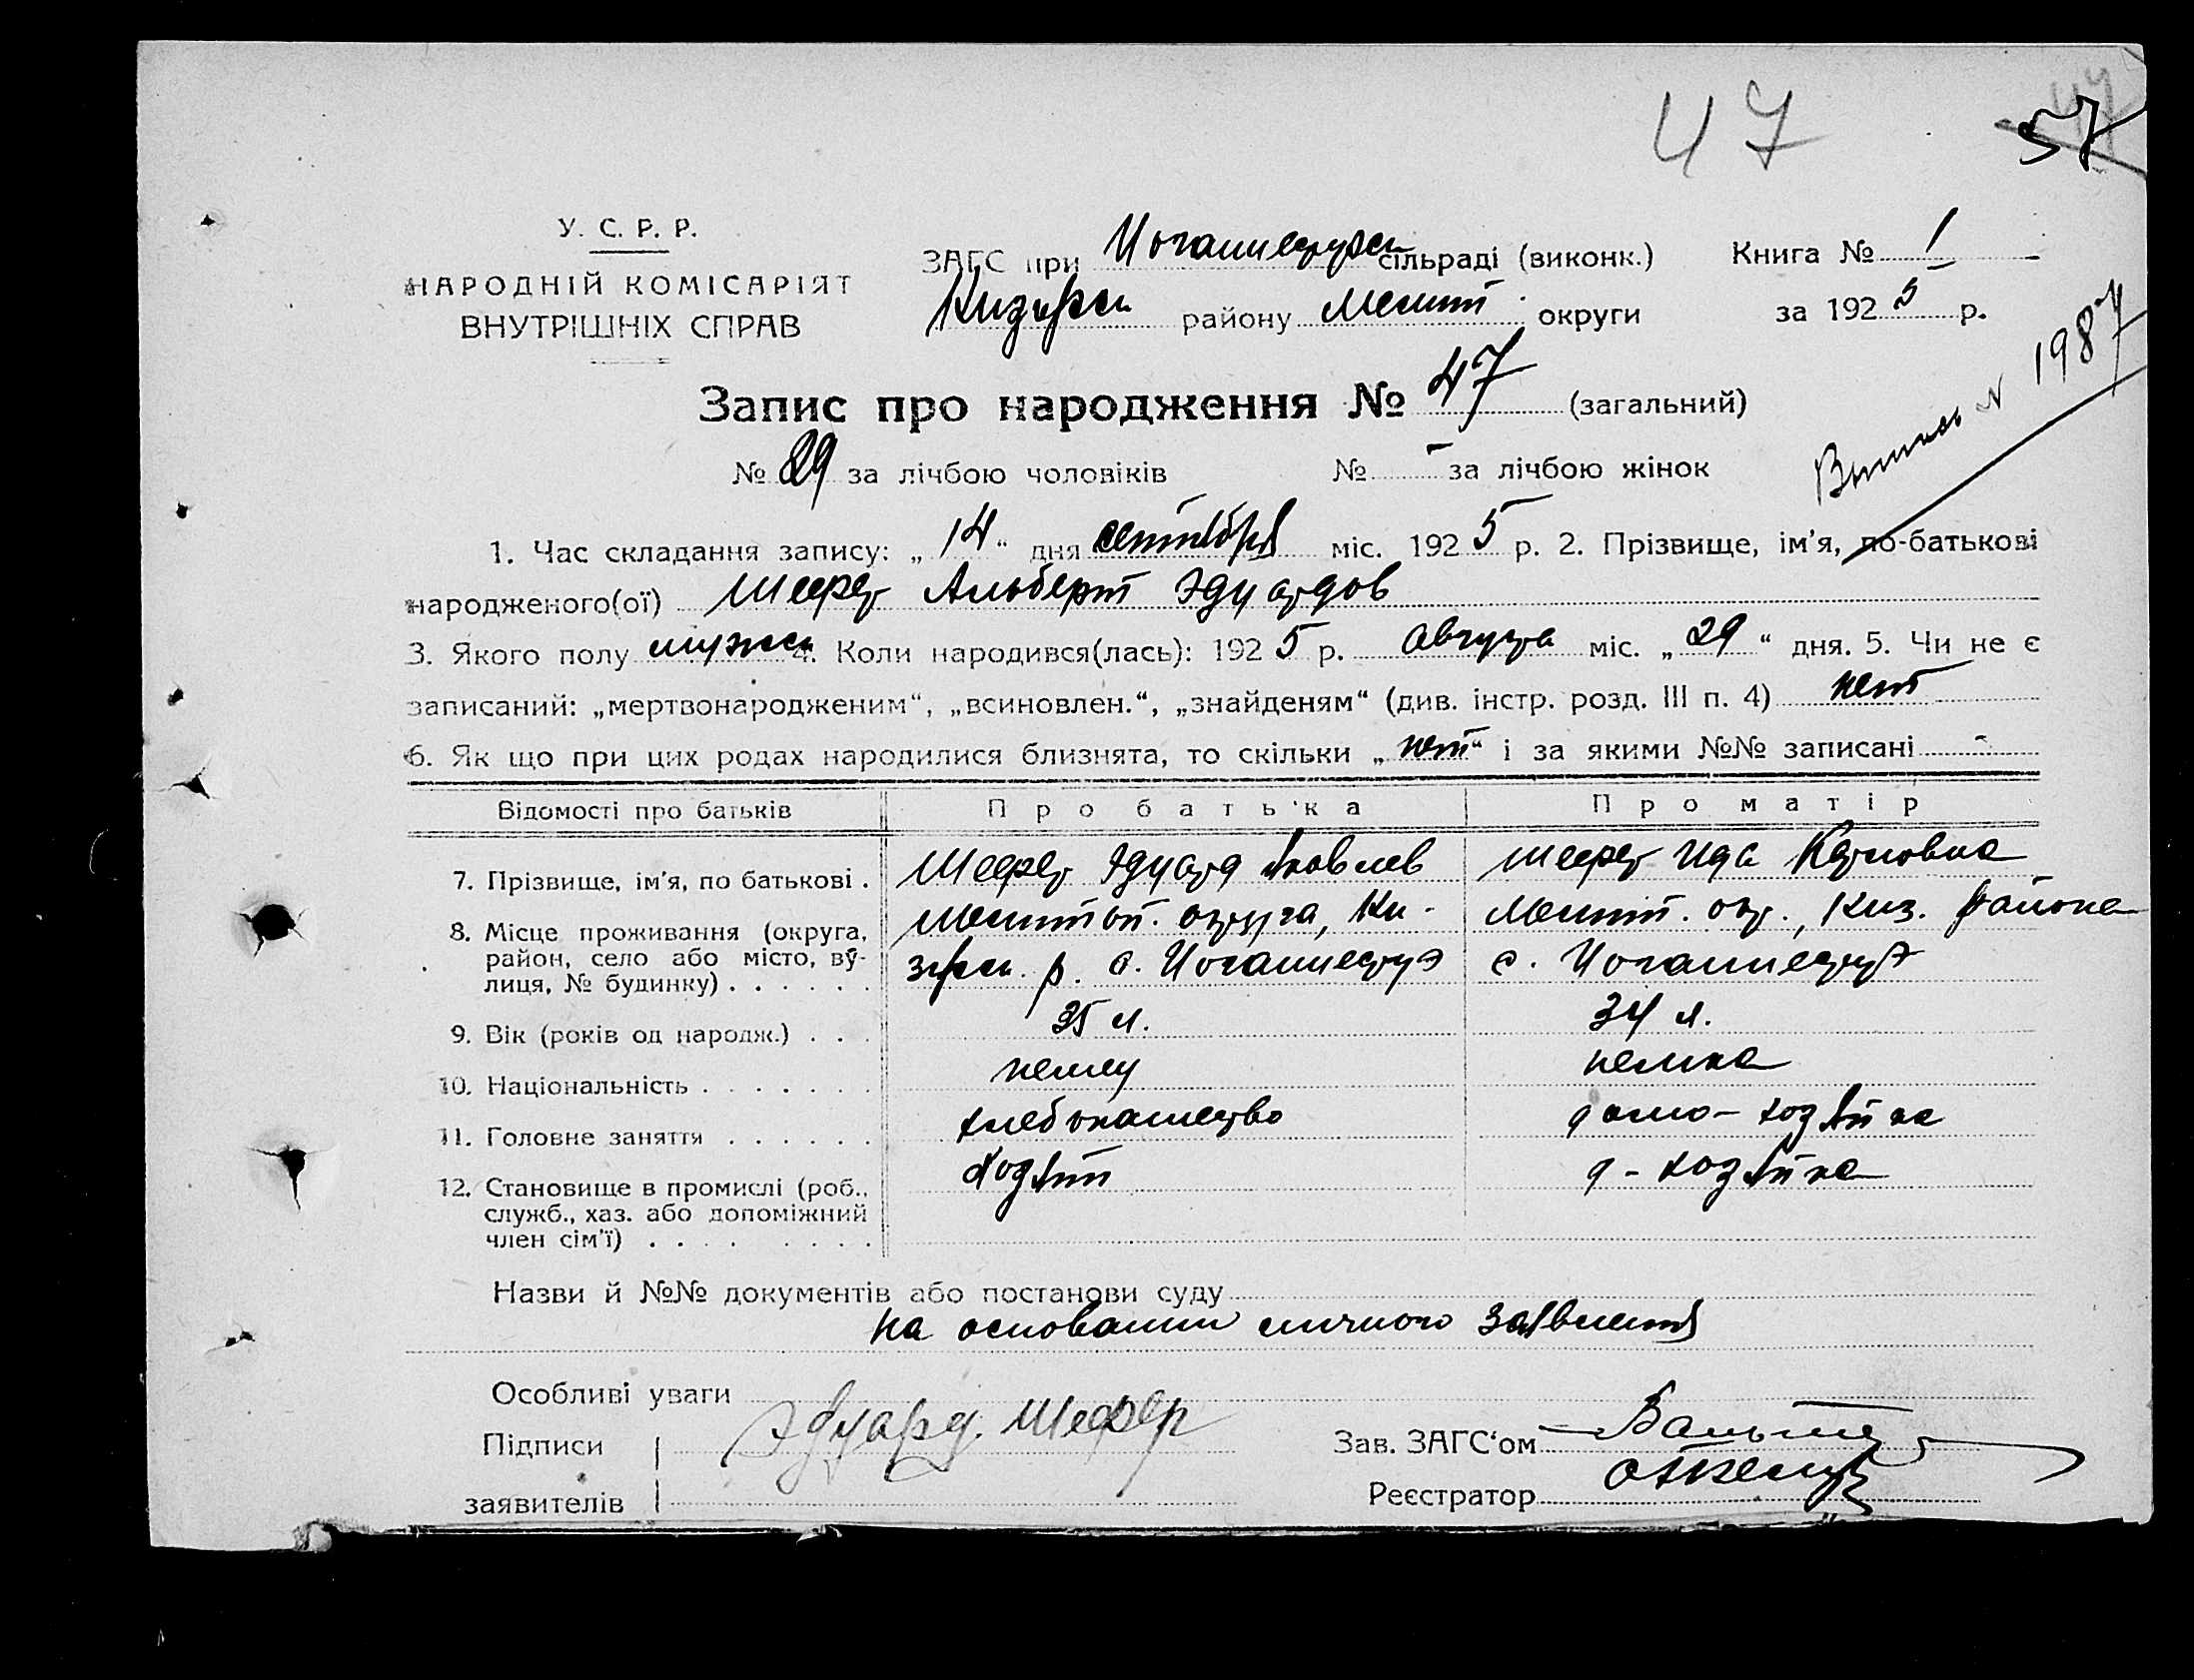 47
57
У. С. Р. Р.
НАРОДНІЙ КОМІСАРІЯТ
ВНУТРІШНІХ СПРАВ
ЗАГС при Иоганнесруск сільраді (виконк.) Книга № 1
Кизярск району Мелит. округи за 1925 р.
Выпись N 1987
Запис про народження № 47 (загальний)
№ 29 за лічбою чоловіків № - за лічбою жінок
1. Час складання запису: „14“ дня сентября міс. 1925 р. 2. Прізвище, ім'я, по-батькові
народженого(ої) Шефер Альберт Эдуардов
3. Якого полу мужск 4. Коли народився(лась): 1925 р. Августа міс. „29“ дня. 5. Чи не є
записаний: „мертвонародженим“, „всиновлен.“, „знайденям“ (див. інстр. розд. III п. 4) нет
6. Як що при цих родах народилися близнята, то скільки „нет“ і за якими №№ записані -
Відомості про батьків Про батька Про матір
7. Прізвище, ім'я, по батькові . Шефер Эдуард Яковлев Шефер Ида Карловна
8. Місце проживання (округа, район, село або місто, вулиця, № будинку) . . . . . . Мелитоп. округа, Кизярск. р. с. Иоганнесруэ Мелит. окр., Киз. района с. Иоганнесруэ
9. Вік (років од народж.) . . . 35 л. 34 л.
10. Національність . . . . . . . немец немка
11. Головне заняття . . . . . . хлебопашество домо-хозяйка
12. Становище в промислі (роб., служб., хаз. або допоміжний член сім'ї) . . . . . . . . хозяин д-хозяйка
Назви й №№ документів або постанови суду
на основании личного заявления
Особливі уваги
Підписи Эдуард. Шефер Зав. ЗАГС'ом
заявителів Реєстратор